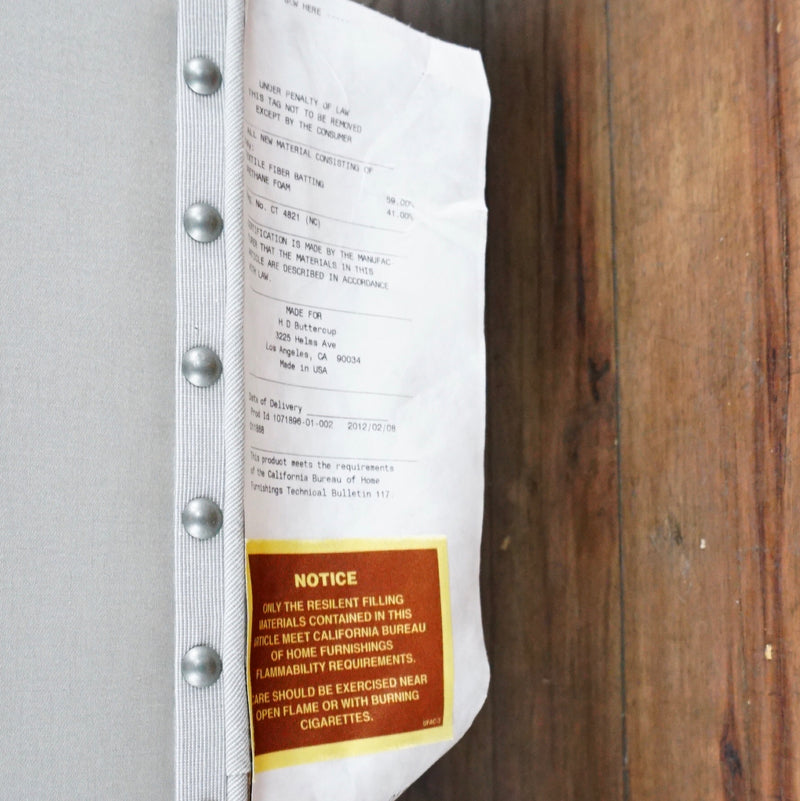 HERE .....
UNDER PENALTY OF LAW
THIS TAG NOT TO BE REMOVED
EXCEPT BY THE CONSUMER
ALL NEW MATERIAL CONSISTING OF
FIBER BATTING
FOAM
59.00%
41.00%
No. CT 4821 (NC)
IS MADE BY THE MANUFAC-
THAT THE MATERIALS IN THIS
ARE DESCRIBED IN ACCORDANCE
LAW.
MADE FOR
H D Buttercup
3225 Helms Ave
Los Angeles, CA 90034
Made in USA
Date of Delivery
Prod Id 1071896-01-002 2012/02/08
This product meets the requirements
of the California Bureau of Home
Furnishings Technical Bulletin 117.
NOTICE
ONLY THE RESILENT FILLING
MATERIALS CONTAINED IN THIS
ARTICLE MEET CALIFORNIA BUREAU
OF HOME FURNISHINGS
FLAMMABILITY REQUIREMENTS.
CARE SHOULD BE EXERCISED NEAR
OPEN FLAME OR WITH BURNING
CIGARETTES.